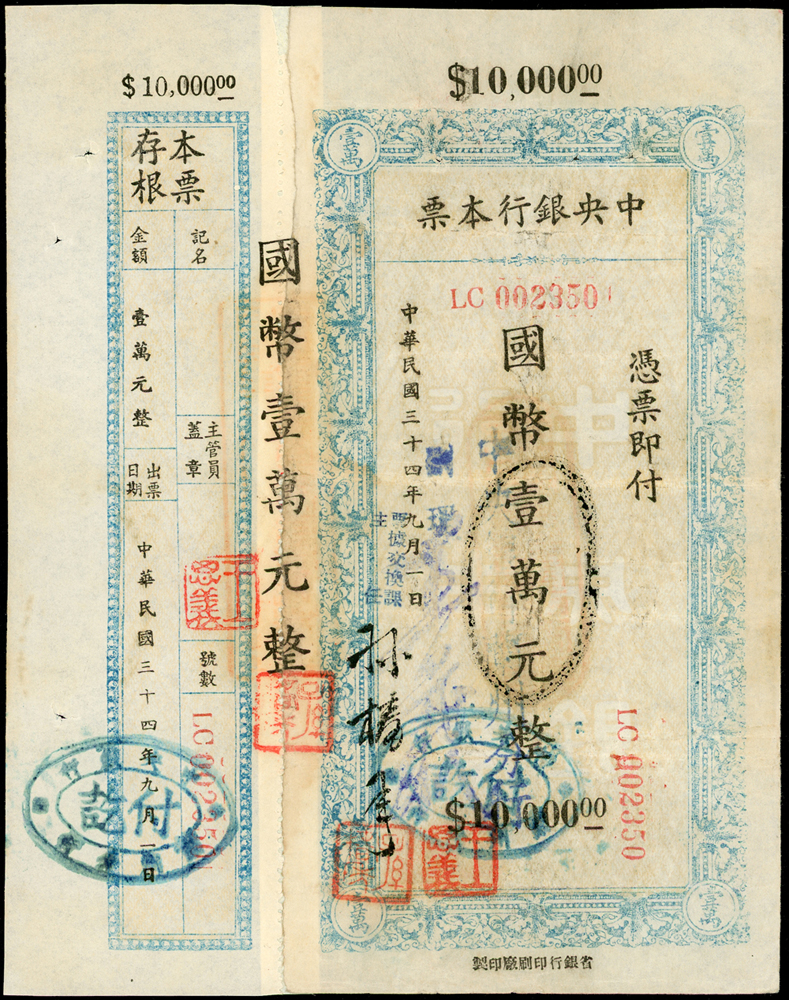 $10,000.00
$10,000.00
本票
存根
記名
金額
壹萬元整
主管員
蓋章
出票
日期
中華民國三十四年九月一日
號數
LC 002350
付訖
國幣壹萬元整
壹萬
壹萬
中央銀行本票
LC 002350
憑票即付
國幣壹萬元整
中華民國三十四年九月一日
票據交換課
主任
LC 002350
$10,000.00
壹萬
壹萬
省銀行印刷廠印製